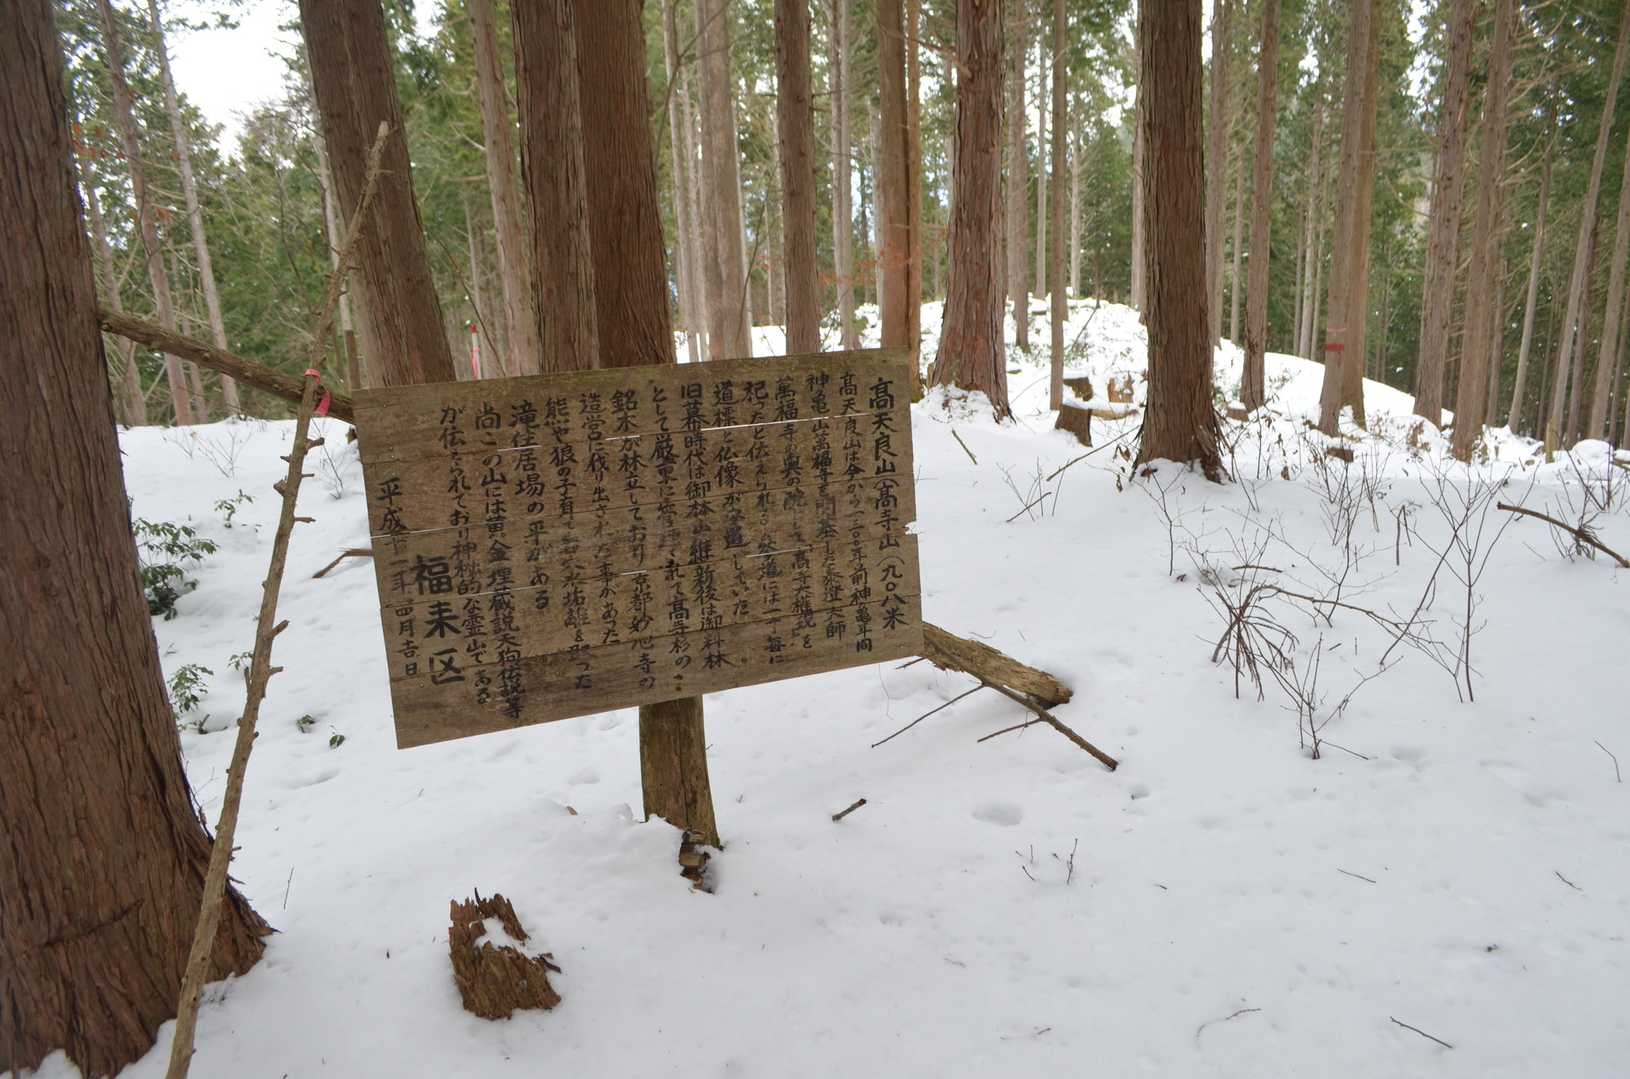 高天良山(高寺山)九〇八米
高天良山は今から一二〇〇年前神亀年間
神亀山萬福寺を開基した泰澄大師
萬福寺の奥の院として高寺大権現を
祀ったと伝えられる 道には一丁毎に
道標と仏像が 置していた
旧幕時代は御林山維新後は御料林
として厳重に管理されて高寺杉の
銘木が林立しており京都妙心寺の
造営に伐り出された事があった
熊や狼の子育て を った
滝住居場の平がある
尚この山には黄金埋蔵説天狗伝説等
が伝えられており神秘的な霊山である
平成十二年四月吉日
福来区